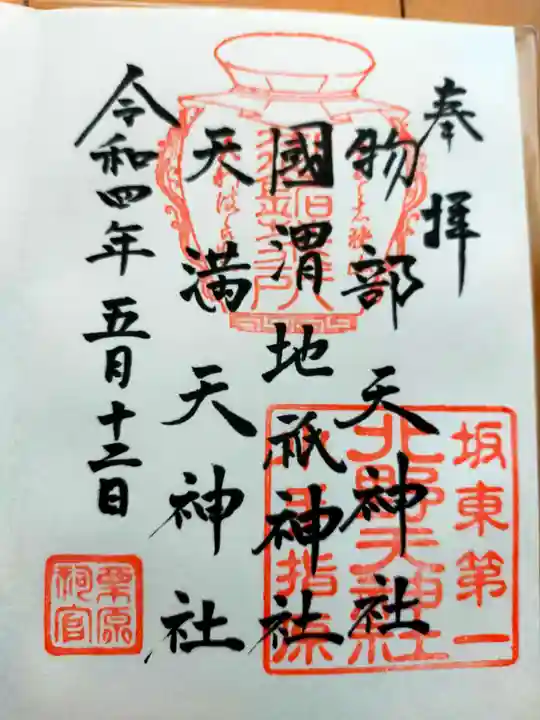 奉拝
物部天神社
國渭地祇神社
天満天神社
令和四年五月十二日
坂東第一
北野天神社
栗原
祠官